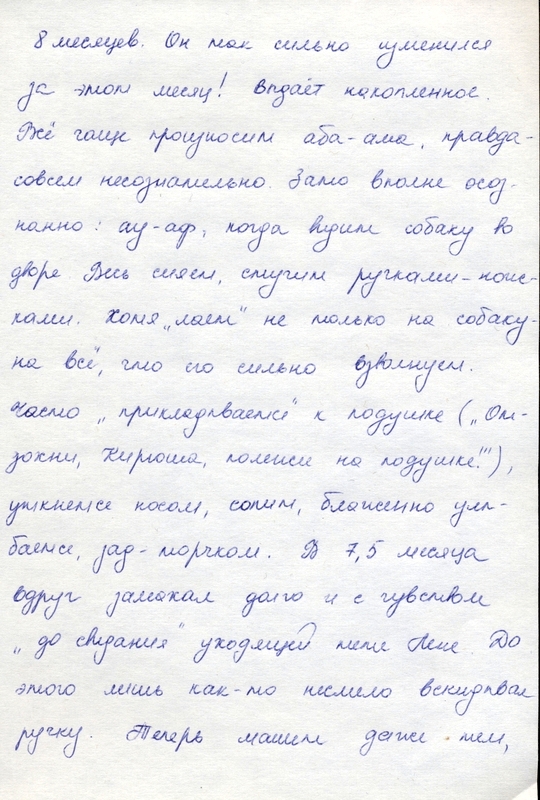 8 месяцев. Он так сильно изменился
за этот месяц! Выдаёт накопленное.
Всё чаще произносит аба-ама, правда-
совсем несознательно. Зато вполне осоз-
нанно: ау-аф, когда видит собаку во
дворе. Весь сияет, стучит ручками-нож-
ками. Хотя „лает" не только на собаку-
на всё, что его сильно взволнует.
Часто „прикладывается" к подушке („От-
дохни, Кирюша, полежи на подушке!"),
уткнется носом, сопит, блаженно улы-
бается, зад-торчком. В 7,5 месяца
вдруг замахал долго и с чувством
„до свидания" уходящей тёте Лене. До
этого лишь как-то несмело вскидывал
ручку. Теперь машет даже тем,